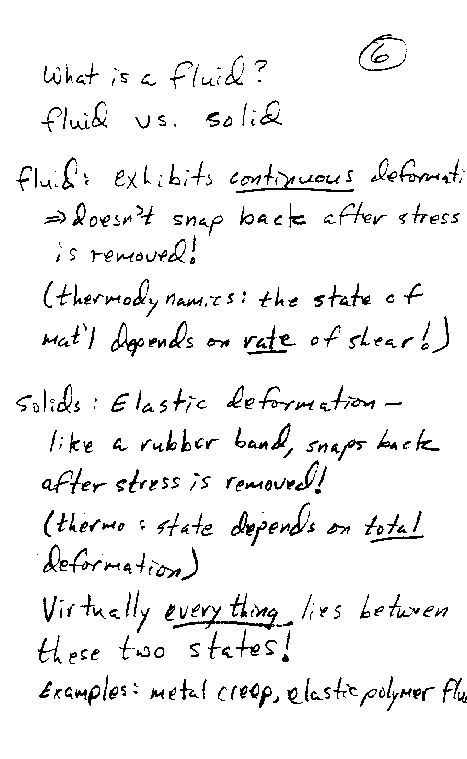 6
What is a fluid?
fluid vs. solid
fluid: exhibits continuous deformati
⇒ doesn't snap back after stress
is removed!
(thermodynamics: the state of
mat'l depends on rate of shear!)
Solids: Elastic deformation –
like a rubber band, snaps back
after stress is removed!
(thermo: state depends on total
deformation)
Virtually everything lies between
these two states!
Examples: metal creep, elastic polymer flu